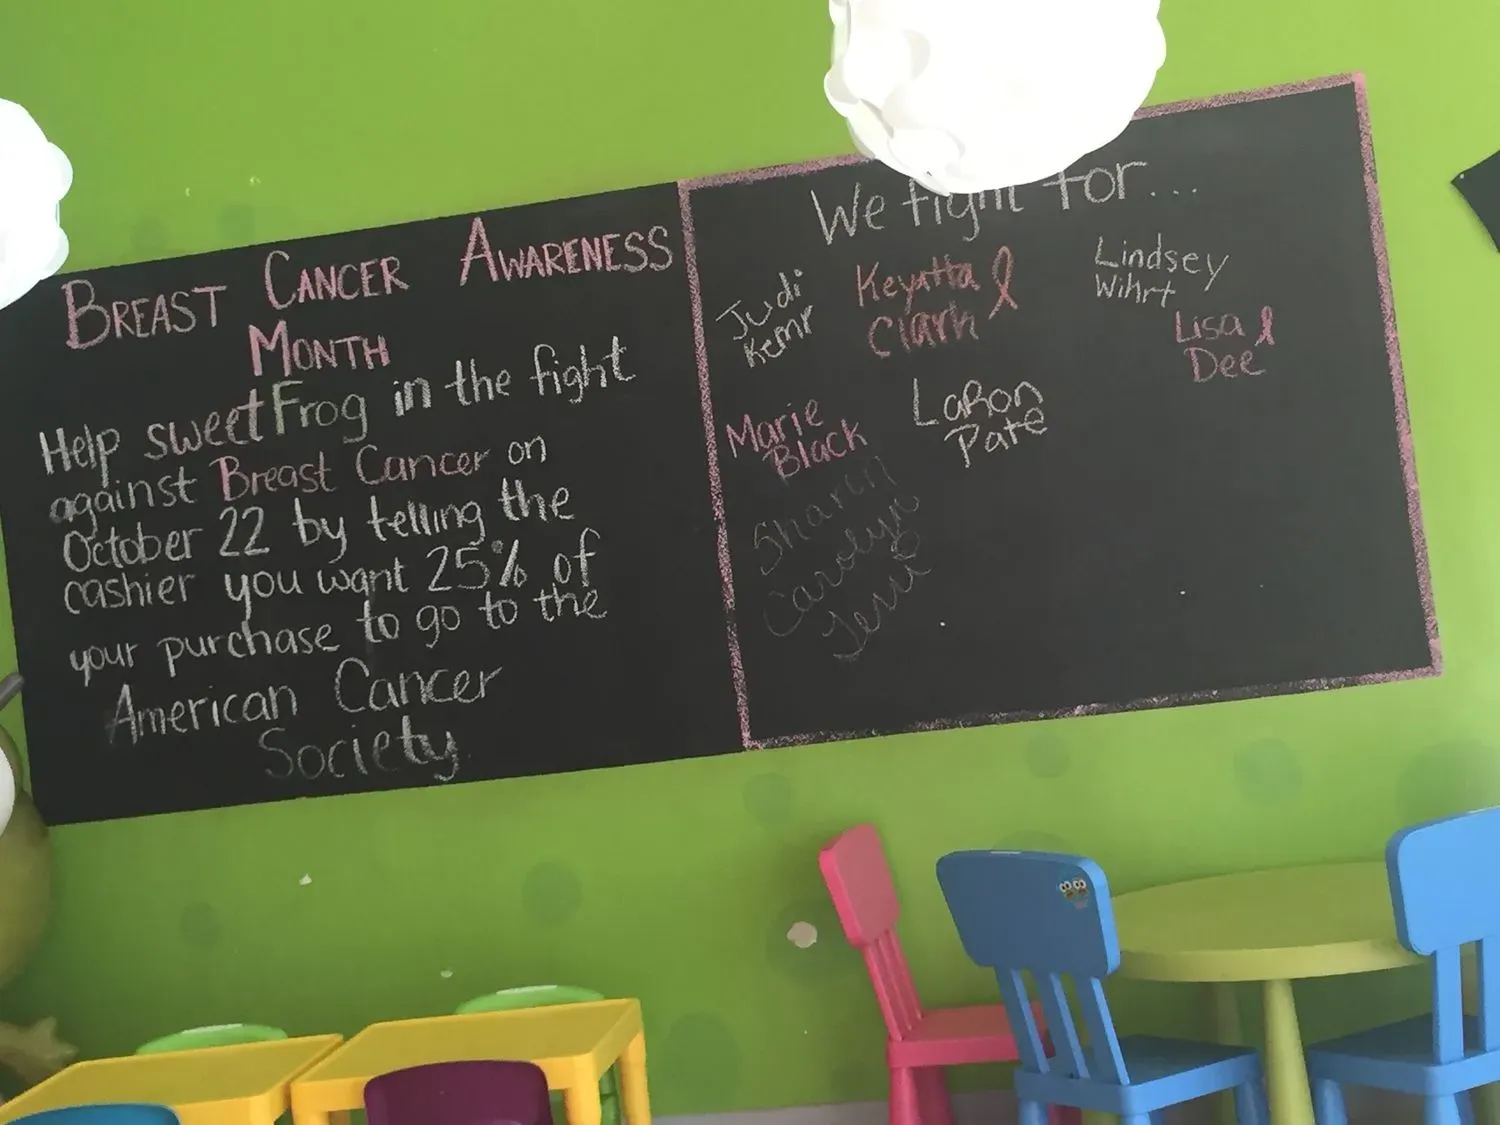 BREAST CANCER AWARENESS
MONTH
Help sweetFrog in the fight
against Breast Cancer on
October 22 by telling the
cashier you want 25% of
your purchase to go to the
American Cancer
Society
We fight for...
Judi
Kemr
Keyatta
Clark
Lindsey
Wihrt
Lisa
Dee
Marie
Black
LaRon
Pate
Sharon
Carolyn